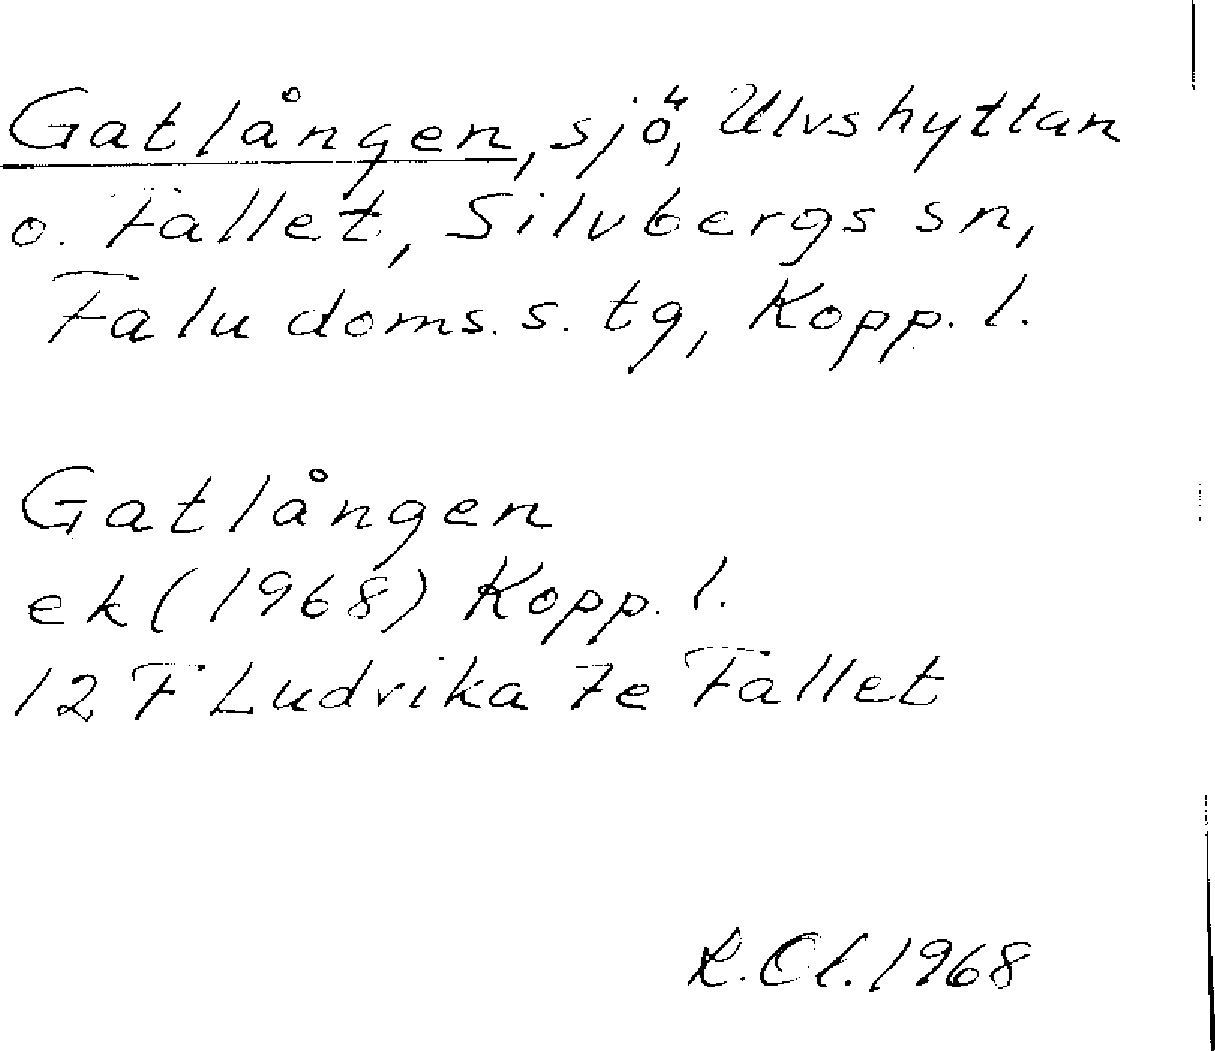 Gatlången, sjö, Ulvshyttan
o. Fallet, Silvbergs sn,
Falu doms. s. tg, Kopp. l.
Gatlången
ek (1968) Kopp. l.
12 F Ludvika 7e Fallet
R. Ol. 1968